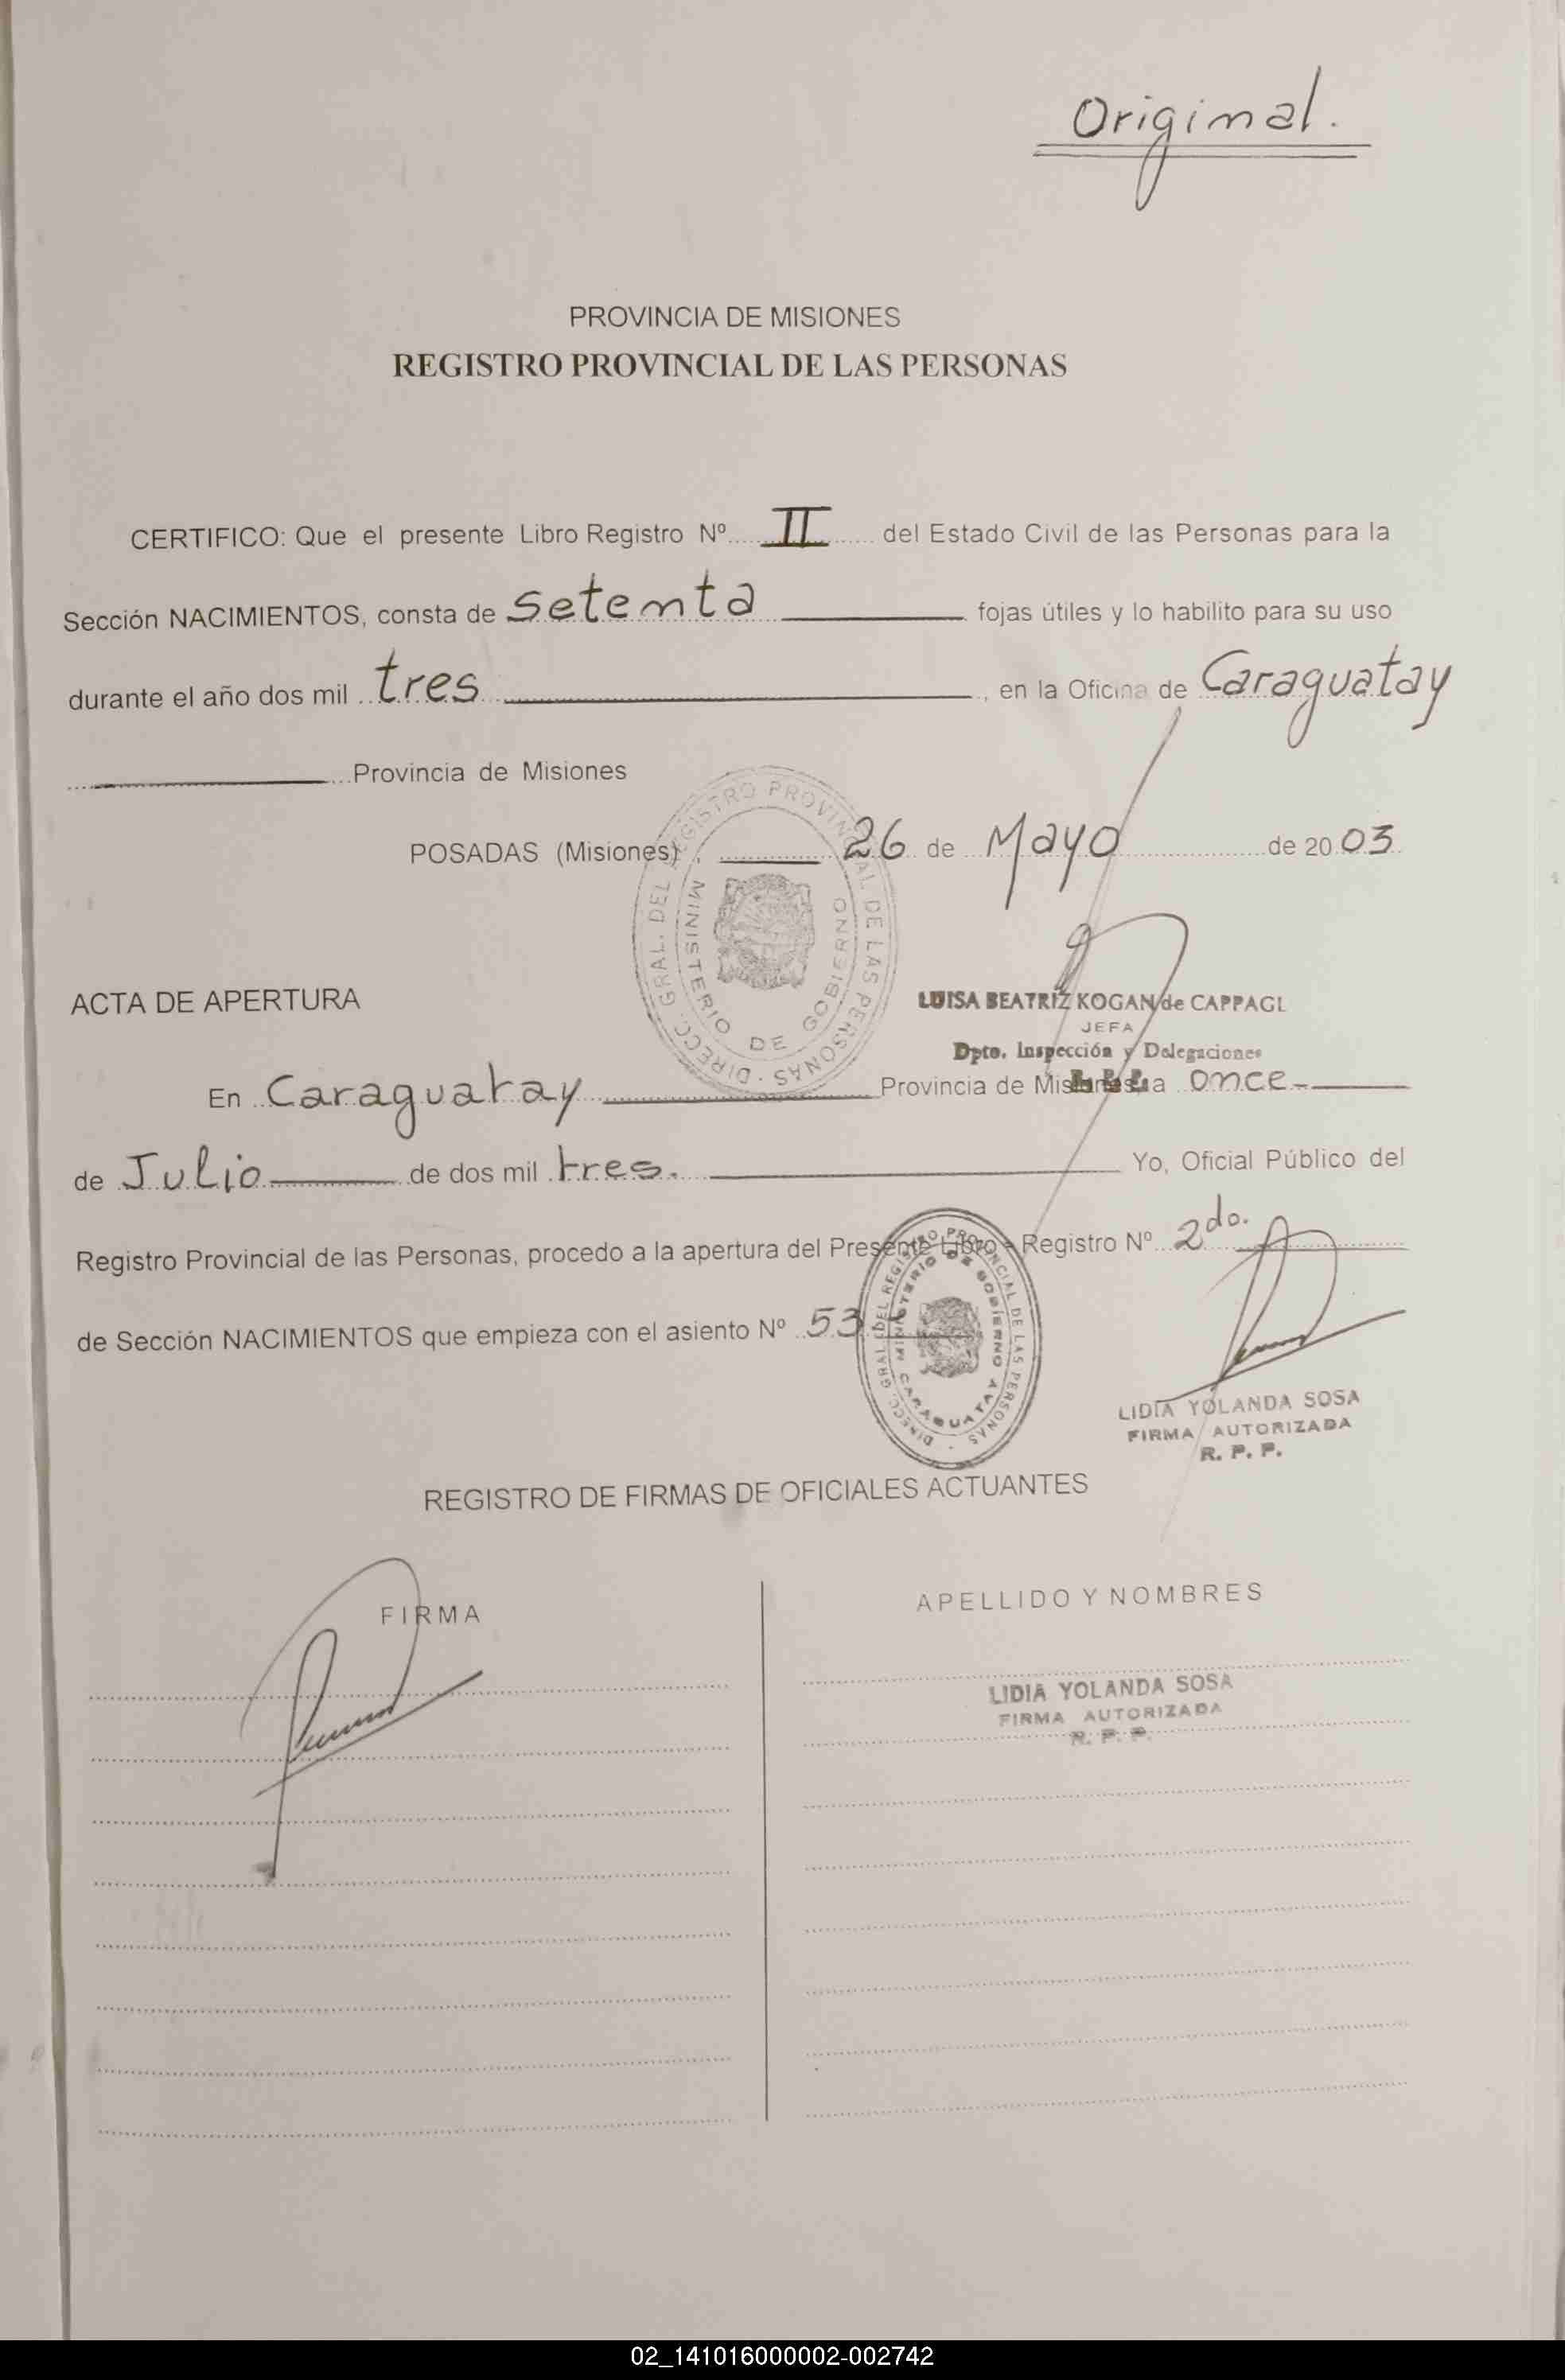 Original.
PROVINCIA DE MISIONES
REGISTRO PROVINCIAL DE LAS PERSONAS
CERTIFICO: Que el presente Libro Registro Nº II del Estado Civil de las Personas para la
Sección NACIMIENTOS, consta de Setenta fojas útiles y lo habilito para su uso
durante el año dos mil tres, en la Oficina de Caraguatay
Provincia de Misiones
POSADAS (Misiones), 26 de Mayo de 20 03
DIRECC. GRAL. DEL REGISTRO PROVINCIAL DE LAS PERSONAS
MINISTERIO DE GOBIERNO
LUISA BEATRIZ KOGAN de CAPPAGL
JEFA
Dpto. Inspección y Delegaciones
ACTA DE APERTURA
En Caraguatay Provincia de Misiones, a once
de Julio de dos mil tres. Yo, Oficial Público del
Registro Provincial de las Personas, procedo a la apertura del Presente Libro Registro Nº 2do.
de Sección NACIMIENTOS que empieza con el asiento Nº 53
DIRECC. GRAL. DEL REGISTRO PROVINCIAL DE LAS PERSONAS
MINISTERIO DE GOBIERNO
CARAGUATAY
LIDIA YOLANDA SOSA
FIRMA AUTORIZADA
R. P. P.
REGISTRO DE FIRMAS DE OFICIALES ACTUANTES
FIRMA
APELLIDO Y NOMBRES
LIDIA YOLANDA SOSA
FIRMA AUTORIZADA
R. P. P.
02_141016000002-002742